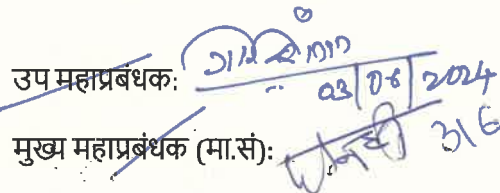 उप महाप्रबंधक:
03/06/2024
मुख्य महाप्रबंधक (मा.सं): 3/6